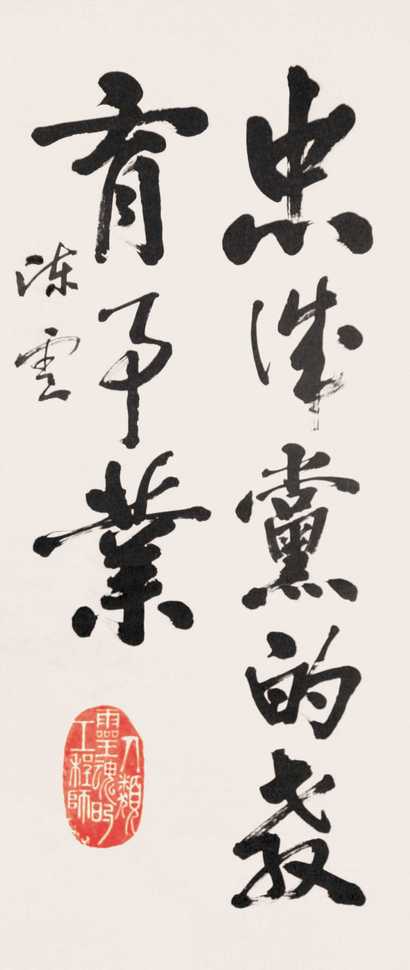 忠诚黨的教
育事業
陈雲
人類
靈魂的
工程師